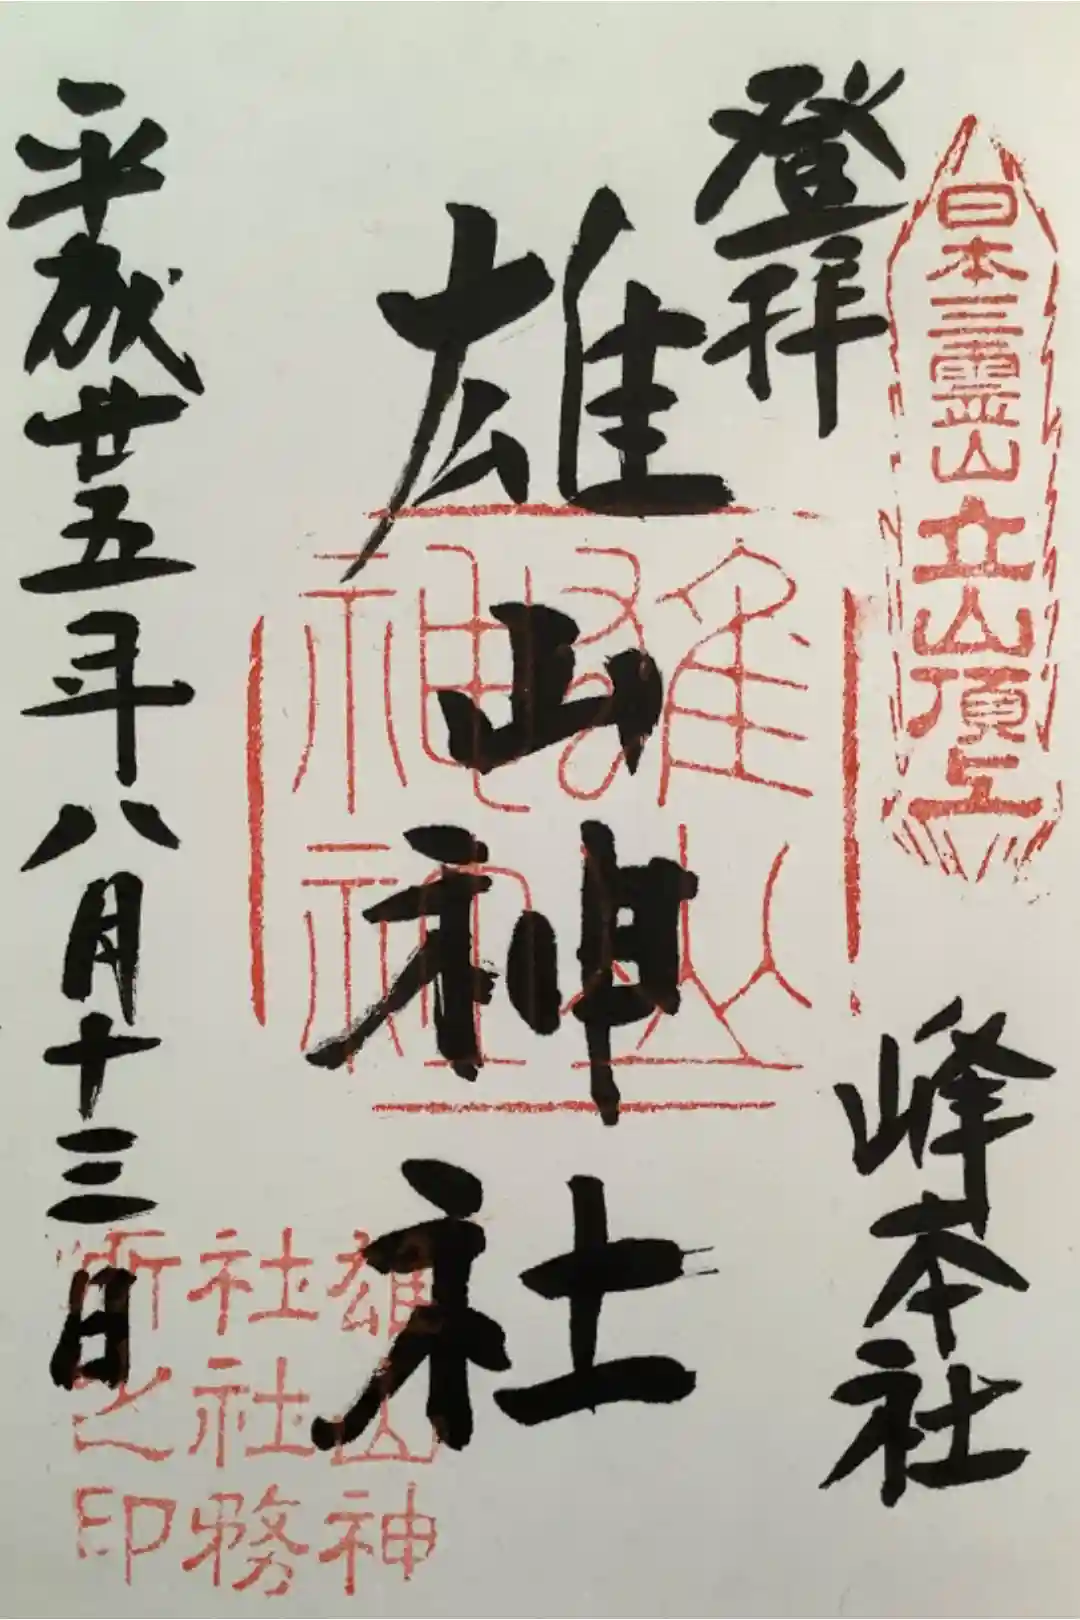 日本三霊山立山頂上
登拝
峰本社
雄山神社
雄山
神社
平成廿五年八月十三日
雄山神
社社務
所之印